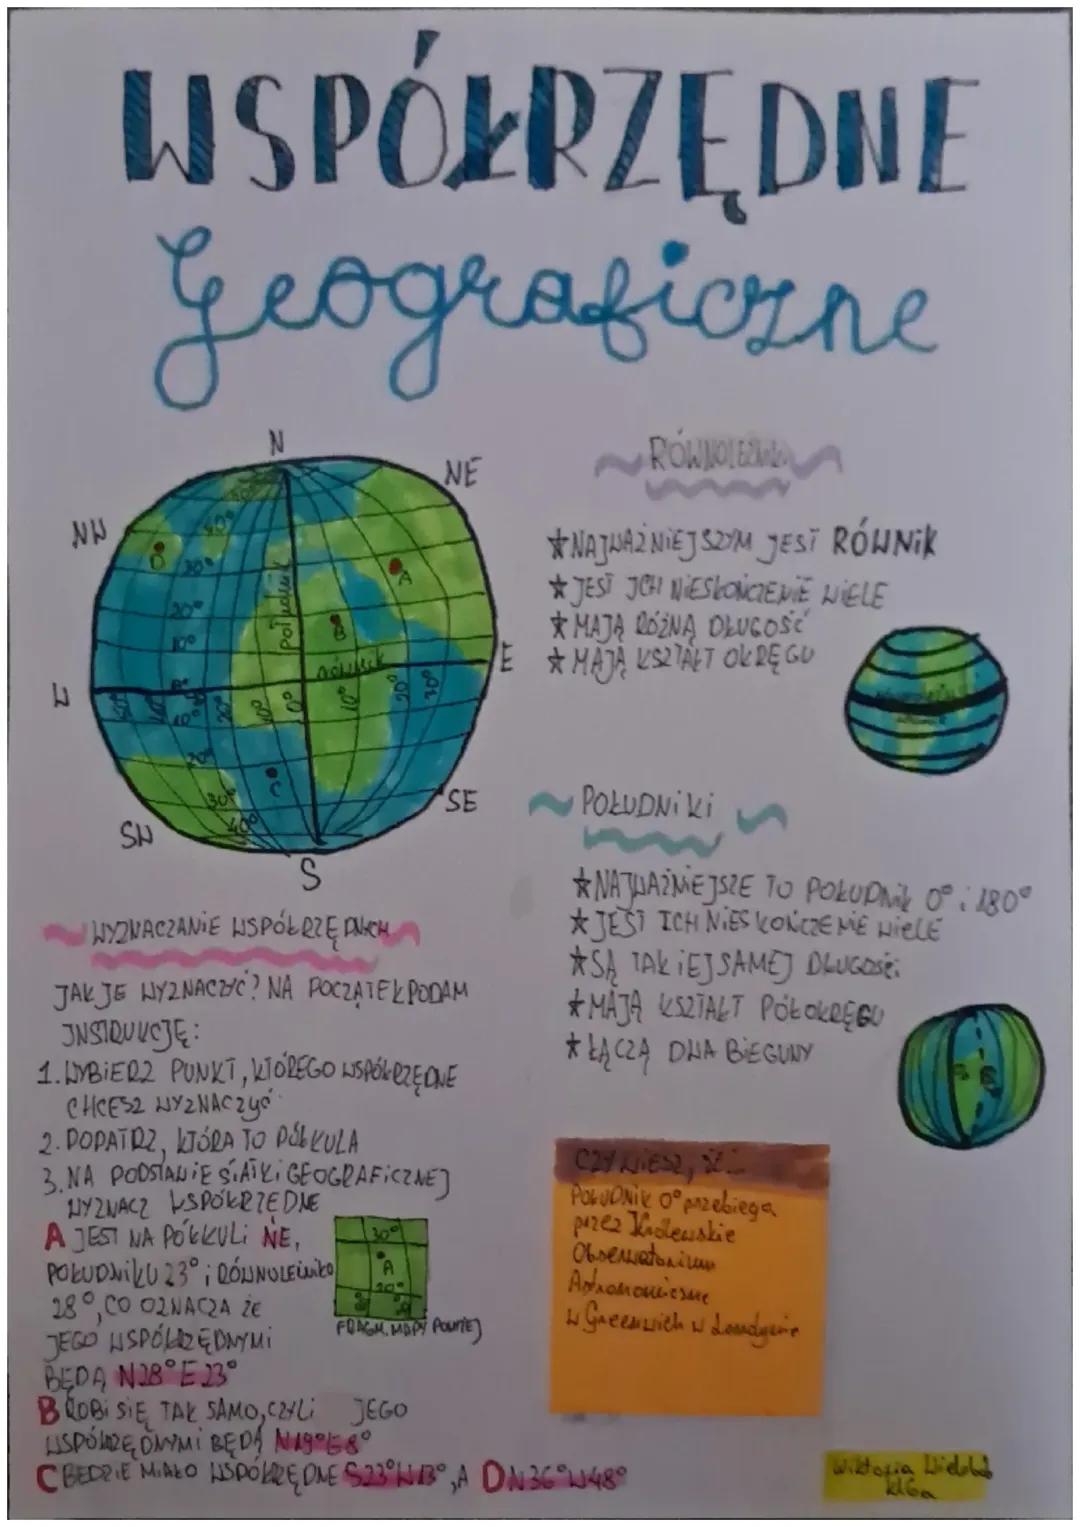 WSPÓŁRZĘDNE
Geograficzne
N
NE
NW
W
E
SW
SE
S
południk
równik
A
B
C
D
40°
30°
20°
10°
0°
10°
20°
30°
40°
20°
10°
0°
10°
20°
30°
RÓWNOLEŻNIKI
★ NAJWAŻNIEJSZYM JEST RÓWNIK
★ JEST ICH NIESKOŃCZENIE WIELE
★ MAJĄ RÓŻNĄ DŁUGOŚĆ
★ MAJĄ KSZTAŁT OKRĘGU
POŁUDNIKI
★ NAJWAŻNIEJSZE TO POŁUDNIK 0° i 180°
★ JEST ICH NIESKOŃCZENIE WIELE
★ SĄ TAKIEJ SAMEJ DŁUGOŚCI
★ MAJĄ KSZTAŁT PÓŁOKRĘGU
★ ŁĄCZĄ DWA BIEGUNY
WYZNACZANIE WSPÓŁRZĘDNYCH
JAK JE WYZNACZYĆ? NA POCZĄTEK PODAM
INSTRUKCJĘ:
1. WYBIERZ PUNKT, KTÓREGO WSPÓŁRZĘDNE
CHCESZ WYZNACZYĆ
2. POPATRZ, KTÓRA TO PÓŁKULA
3. NA PODSTAWIE SIATKI GEOGRAFICZNEJ
WYZNACZ WSPÓŁRZĘDNE
A JEST NA PÓŁKULI NE,
POŁUDNIKU 23° i RÓWNOLEŻNIKO
28°, CO OZNACZA ŻE
JEGO WSPÓŁRZĘDNYMI
BĘDĄ N28°E23°
30°
A
20°
FRAGM. MAPY POWYŻEJ
B ROBI SIĘ TAK SAMO, CZYLI JEGO
WSPÓŁRZĘDNYMI BĘDĄ N19°E8°
C BĘDZIE MIAŁO WSPÓŁRZĘDNE S23°W13°, A D N36°W48°
CZY WIESZ, ŻE...
POŁUDNIK 0° przebiega
przez Królewskie
Obserwatorium
Astronomiczne
w Greenwich w Londynie
Wiktoria
kl6a